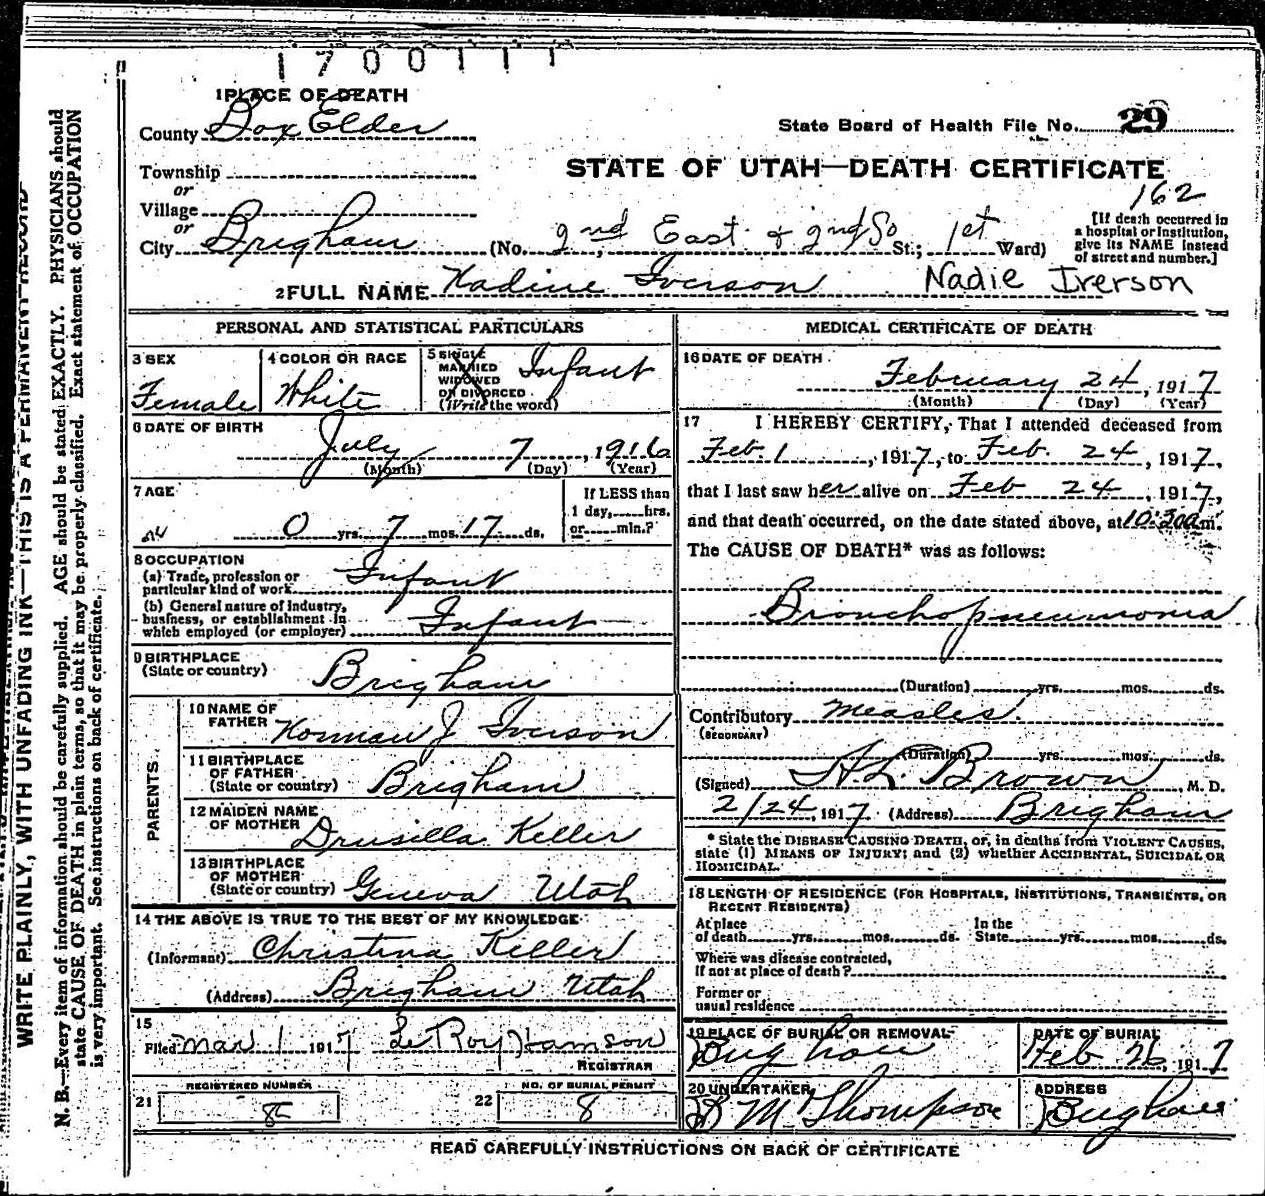 1700111
1 PLACE OF DEATH
County Box Elder
State Board of Health File No. 29
Township
or
STATE OF UTAH—DEATH CERTIFICATE
162
Village
or
City Brigham (No. 2nd East & 2nd So St.; 1st Ward)
[If death occurred in
a hospital or institution,
give its NAME instead
of street and number.]
2 FULL NAME Nadine Iverson Nadie Irerson
PERSONAL AND STATISTICAL PARTICULARS
3 SEX
Female
4 COLOR OR RACE
White
5 SINGLE
MARRIED
WIDOWED
OR DIVORCED
(Write the word)
Infant
6 DATE OF BIRTH
July 7, 1916
(Month) (Day) (Year)
7 AGE
0 yrs. 7 mos. 17 ds.
If LESS than
1 day, hrs.
or min.?
8 OCCUPATION
(a) Trade, profession or
particular kind of work Infant
(b) General nature of industry,
business, or establishment in
which employed (or employer) Infant
9 BIRTHPLACE
(State or country) Brigham
PARENTS
10 NAME OF
FATHER Norman J Iverson
11 BIRTHPLACE
OF FATHER
(State or country) Brigham
12 MAIDEN NAME
OF MOTHER Drusilla Keller
13 BIRTHPLACE
OF MOTHER
(State or country) Geneva Utah
14 THE ABOVE IS TRUE TO THE BEST OF MY KNOWLEDGE
(Informant) Christina Keller
(Address) Brigham Utah
15
Filed Mar 1 1917 Le Roy Hamson
REGISTRAR
REGISTERED NUMBER
21
NO. OF BURIAL PERMIT
22 8
MEDICAL CERTIFICATE OF DEATH
16 DATE OF DEATH
February 24, 1917
(Month) (Day) (Year)
17 I HEREBY CERTIFY, That I attended deceased from
Feb. 1, 1917, to Feb. 24, 1917,
that I last saw her alive on Feb 24, 1917,
and that death occurred, on the date stated above, at 10:30a m.
The CAUSE OF DEATH* was as follows:
Bronchopneumonia
(Duration) yrs. mos. ds.
Contributory Measles.
(SECONDARY)
(Duration) yrs. mos. ds.
(Signed) H.L. Brown, M. D.
2/24, 1917 (Address) Brigham
* State the DISEASE CAUSING DEATH, or, in deaths from VIOLENT CAUSES,
state (1) MEANS OF INJURY; and (2) whether ACCIDENTAL, SUICIDAL OR
HOMICIDAL.
18 LENGTH OF RESIDENCE (FOR HOSPITALS, INSTITUTIONS, TRANSIENTS, OR
RECENT RESIDENTS)
At place
of death yrs. mos. ds.
In the
State yrs. mos. ds.
Where was disease contracted,
if not at place of death?
Former or
usual residence
19 PLACE OF BURIAL OR REMOVAL
Brigham
DATE OF BURIAL
Feb 26, 1917
20 UNDERTAKER
M Thompson
ADDRESS
Brigham
READ CAREFULLY INSTRUCTIONS ON BACK OF CERTIFICATE
WRITE PLAINLY, WITH UNFADING INK—THIS IS A PERMANENT RECORD
N. B.—Every item of information should be carefully supplied. AGE should be stated EXACTLY. PHYSICIANS should
state CAUSE OF DEATH in plain terms, so that it may be properly classified. Exact statement of OCCUPATION
is very important. See instructions on back of certificate.